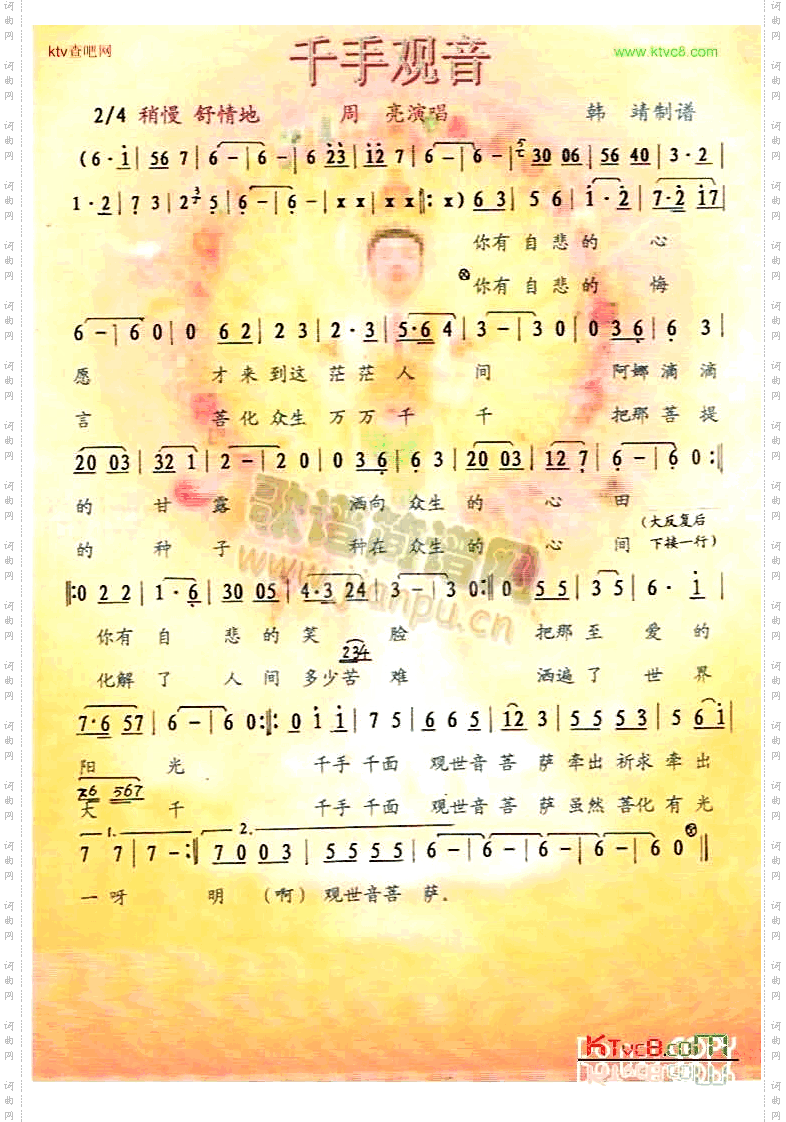 ktv查吧网
千手观音
www.ktvc8.com
2/4 稍慢 舒情地 周 亮演唱 韩 靖制谱
(6·i|56 7|6-|6-|6 23|i2 7|6-|6-|30 06|56 40|3·2|
1·2|7 3|2 5|6-|6-|x x|x x:|x) 63|5 6|i·2|7·2 i7|
你有 自 悲 的 心
你有 自 悲 的 悔
6-|6 0|0 62|2 3|2·3|5·6 4|3-|3 0|0 36|6 3|
愿 才 来 到这 茫 茫 人 间 阿娜 滴 滴
言 菩 化 众生 万 万 千 千 把那 菩 提
20 03|32 1|2-|2 0|0 36|6 3|20 03|12 7|6-|6 0:|
的 甘 露 洒向 众生 的 心 田
(大反复后
的 种 子 种在 众生 的 心 间 下接一行)
|:0 22|1·6|30 05|4·3 24|3-|3 0:|0 55|35|6·i|
你有 自 悲 的 笑 脸 把那 至 爱 的
234
化解 了 人 间 多少苦 难 洒遍 了 世 界
7·6 57|6-|6 0:|0 ii|7 5|665|i2 3|5 5 53|5 6i|
阳 光 千手 千面 观世音 菩 萨 牵出 祈求 牵出
567
大 千 千手 千面 观世音 菩 萨 虽然 菩化 有光
1. 2.
7 7|7-:|70 03|55 55|6-|6-|6-|6 0||
一 呀 明 (啊) 观世音菩 萨。
歌谱简谱网
www.jianpu.cn
KTvc8.com
词曲网